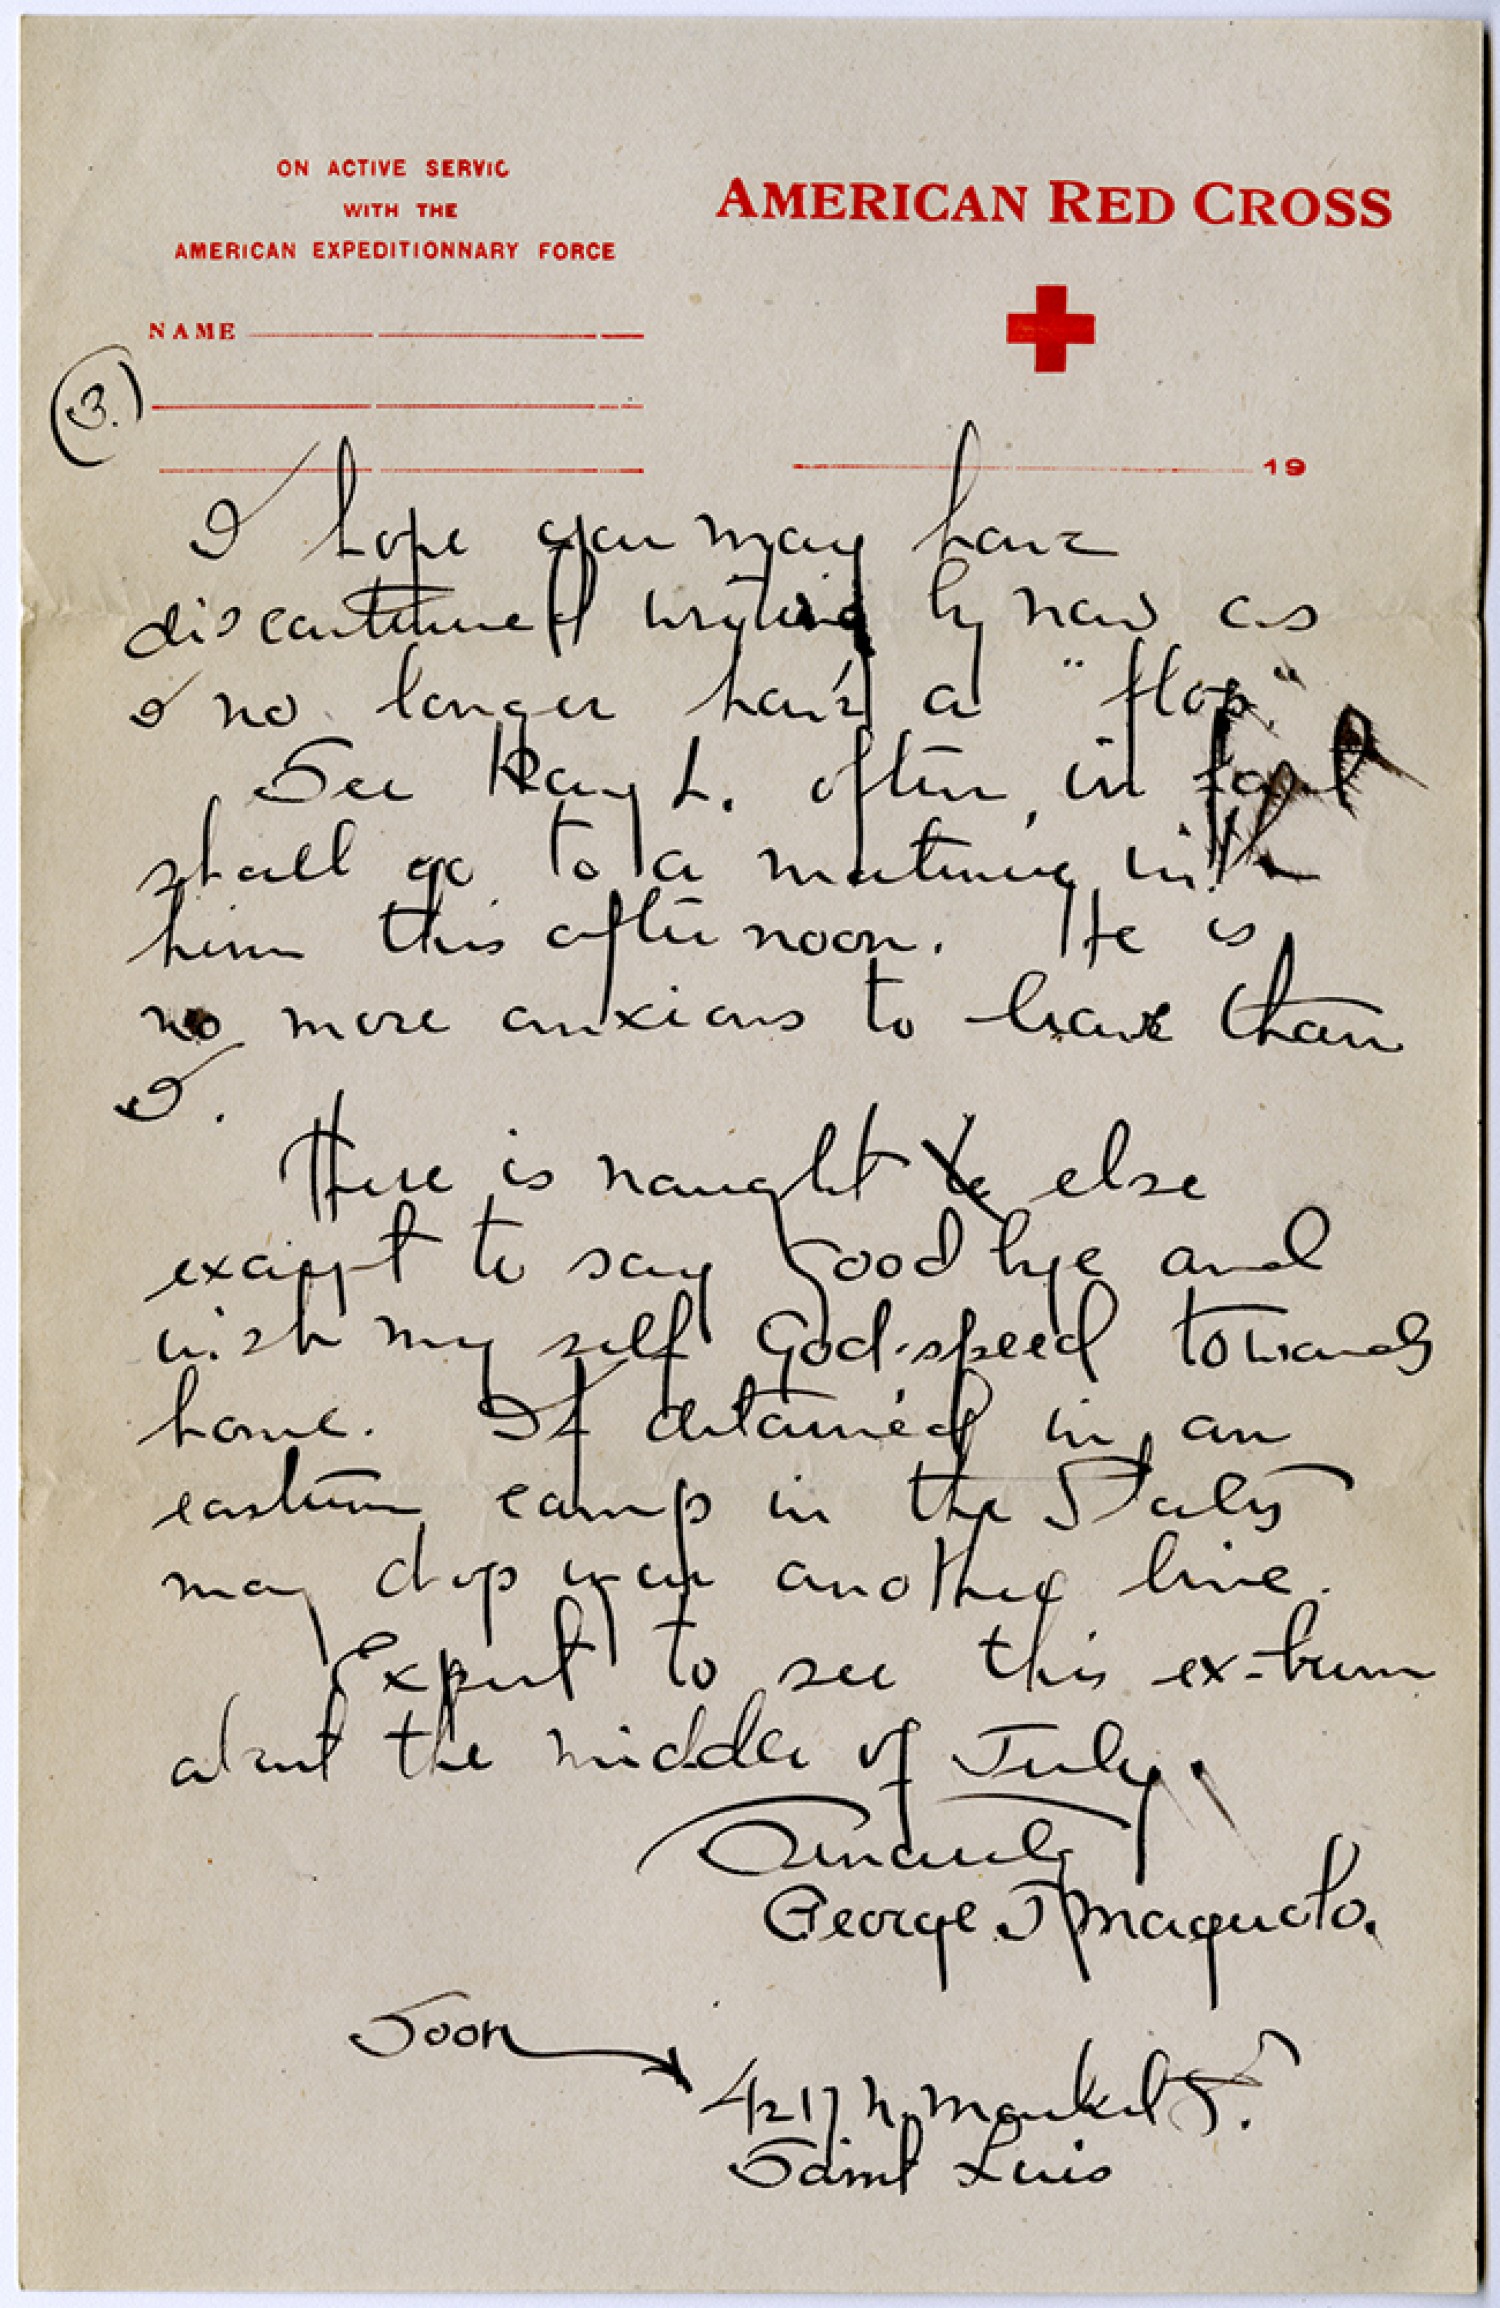 ON ACTIVE SERVIC
WITH THE
AMERICAN EXPEDITIONNARY FORCE
AMERICAN RED CROSS
NAME
(3.)
19
I hope you may have
discontinued writing by now as
I no longer have a "flop."
See Ray L. often, in fact
shall go to a matinee with
him this afternoon. He is
no more anxious to leave than
I.
There is naught else
except to say Good bye and
wish my self God-speed towards
home. If detained in an
eastern camp in the States
may drop you another line.
Expect to see this ex-bum
about the middle of July.
Sincerely
George J
Soon
4217 N. Market St.
Saint Luis